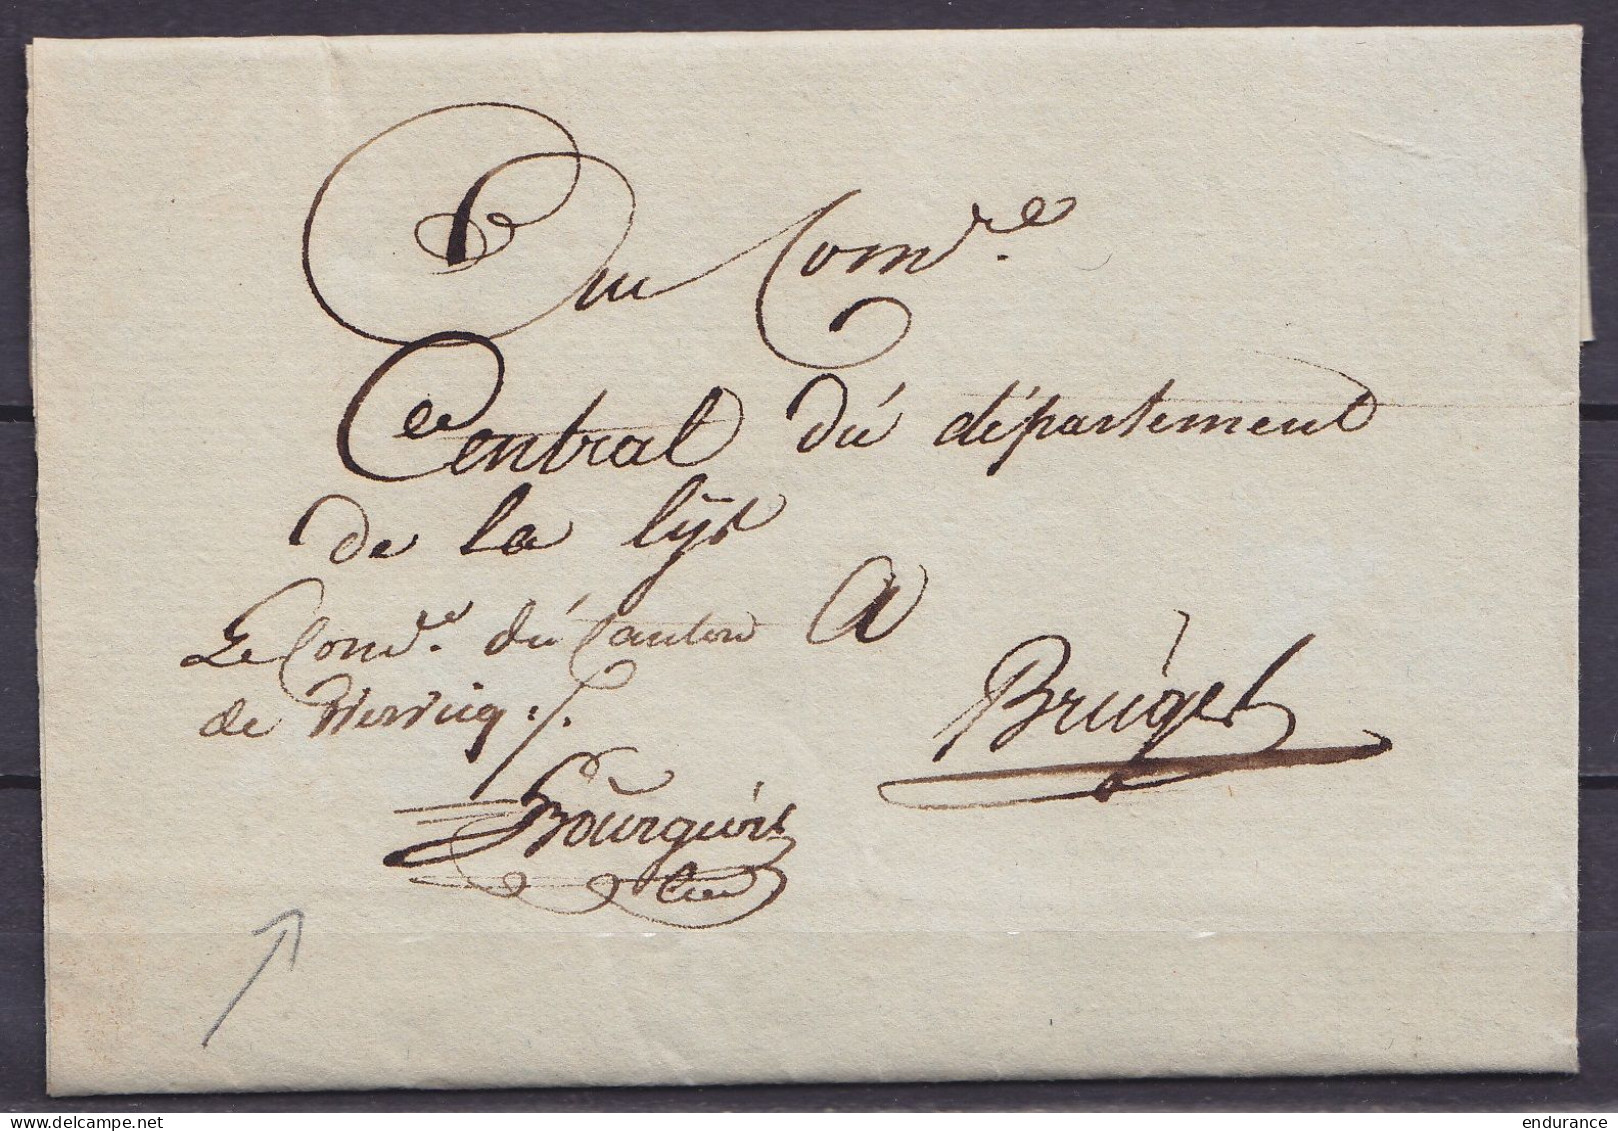 Au Comre.
Central dú département
de la Lÿs
A
Brúges
Le Comre. dú Canton
de Wervicq :/.
Boŭrgúois
delcampe.net
endurance